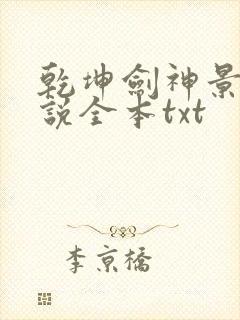 乾坤劍神景
說全本txt
李京橋